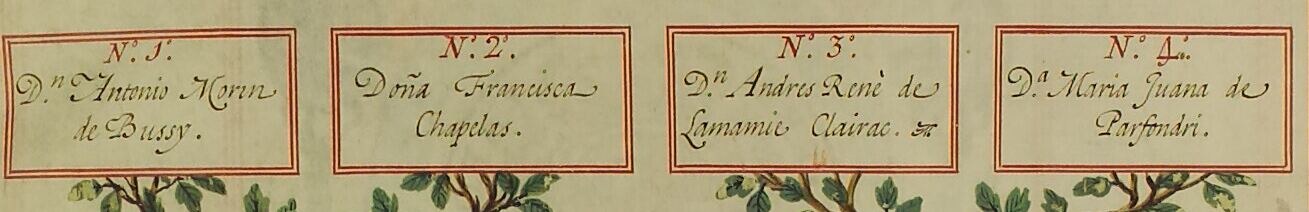 N.º 1º
D.ⁿ Antonio Moren
de Bussy.
N.º 2º.
Doña Francisca
Chapelas.
N.º 3º.
D.ⁿ Andres Renè de
Lamamie Clairac.
N.º 4º.
D.ª Maria Juana de
Parfondri.